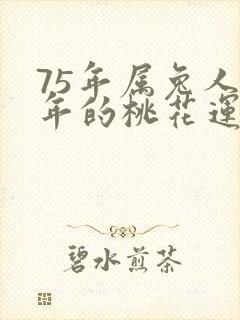 75年属兔人
年的桃花運
碧水煎茶